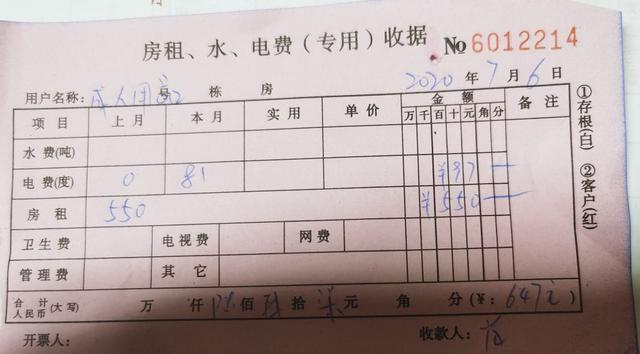 房租、水、电费（专用）收据 №6012214
用户名称: 栋 房 2020年7月6日
项目 上月 本月 实用 单价 金额 备注
万千百十元角分
水费(吨)
电费(度) 0 81 ¥97—
房租 550 ¥550—
卫生费 电视费 网费
管理费 其它
合计人民币(大写) 万 仟 陆佰 拾柒元 角 分(¥: 647元)
开票人: 收款人:
①存根(白) ②客户(红)